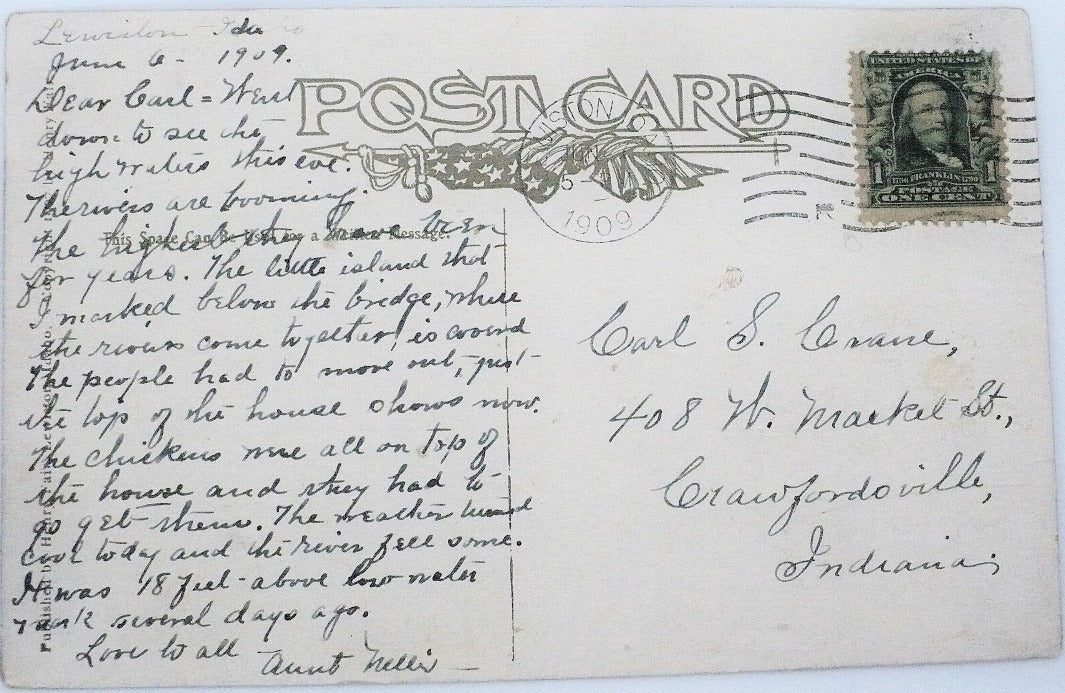 Lewiston Idaho
June 6 - 1909.
Dear Carl = Went
down to see the
high waters this eve.
The rivers are booming
the highest they have been
for years. The little island that
I marked below the bridge, where
the rivers come together, is coverd
The people had to move out, just
the top of the house shows now.
The chickens were all on top of
the house and they had to
go get them. The weather turned
cool today and the river fell some.
It was 18 feet above low water
mark several days ago.
Love to all
Aunt Nellie
This Space Can Be Used for a Written Message.
POST CARD
1909
UNITED STATES OF
AMERICA
1 1
1706 FRANKLIN 1790
POSTAGE
ONE CENT
Carl S. Crane,
408 W. Market St.,
Crawfordsville,
Indiana,